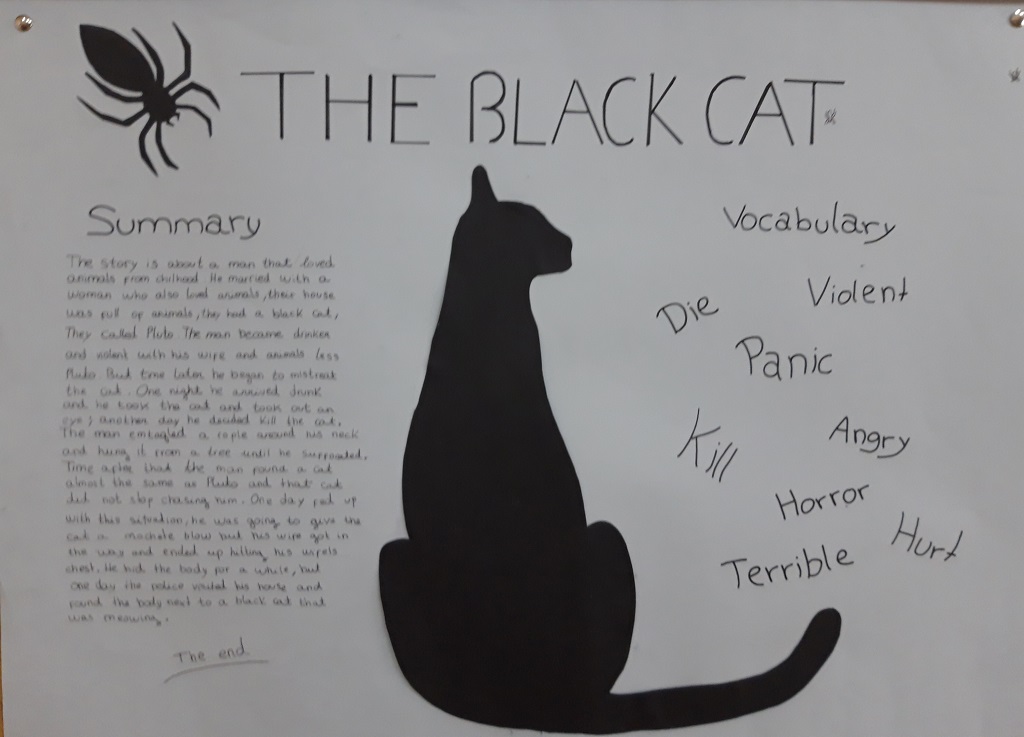 THE BLACK CAT
Summary
The story is about a man that loved
animals from chilhood. He married with a
woman who also loved animals, their house
was full of animals, they had a black cat,
They called Pluto. The man became drunken
and violent with his wife and animals less
Pluto. But time later he began to mistreat
the cat. One night he arrived drunk
and he took the cat and took out an
eye; another day he decided kill the cat.
The man entagled a rople around his neck
and hung it from a tree until he surrogated.
Time after that the man found a cat
almost the same as Pluto and that cat
did not stop chasing him. One day fed up
with this situation, he was going to give the
cat a machete blow but his wife got in
the way and ended up hitting his wife's
chest. He hid the body for a while, but
one day the police visited his house and
found the body next to a black cat that
was meowing.
The end
Vocabulary
Die
Violent
Panic
Kill
Angry
Horror
Hurt
Terrible